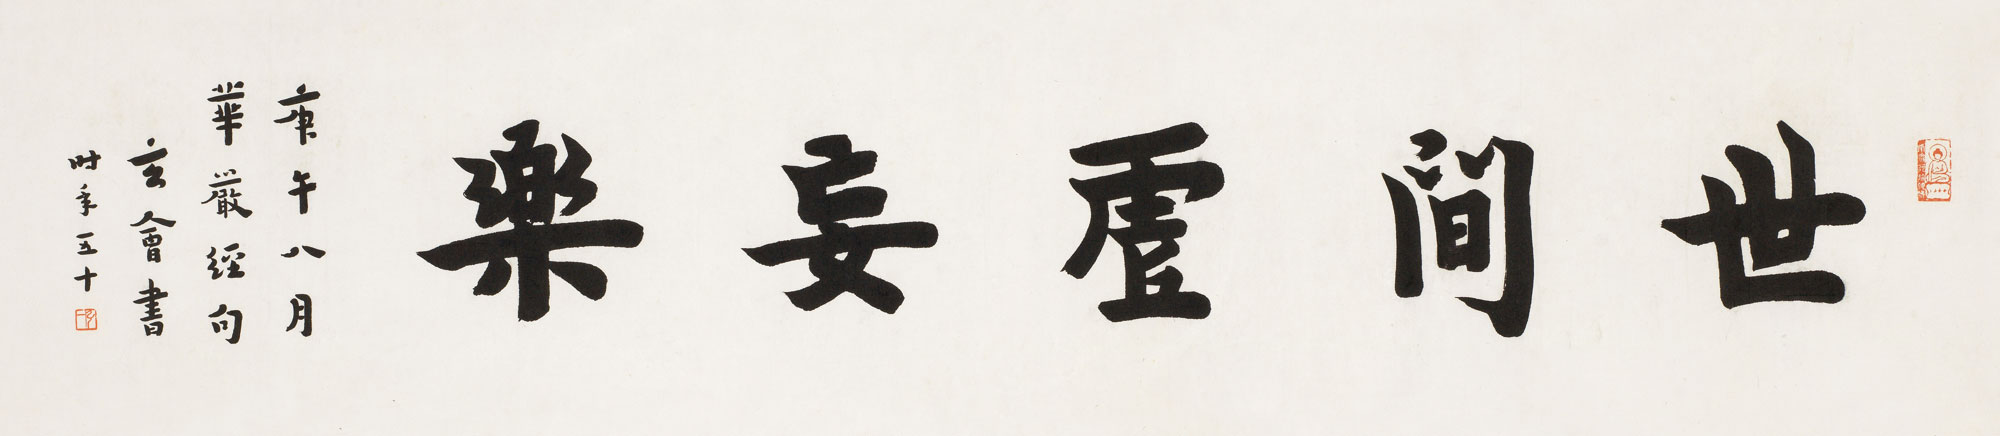 世間虛妄樂
庚午八月
華嚴經句
玄會書
時年五十